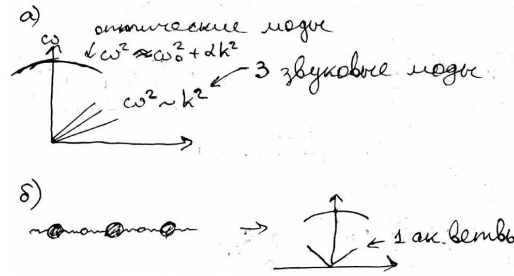 а)
оптические моды
ω
ω² ≈ ω₀² + αk²
ω² ~ k²
3 звуковые моды
б)
1 ак. ветвь